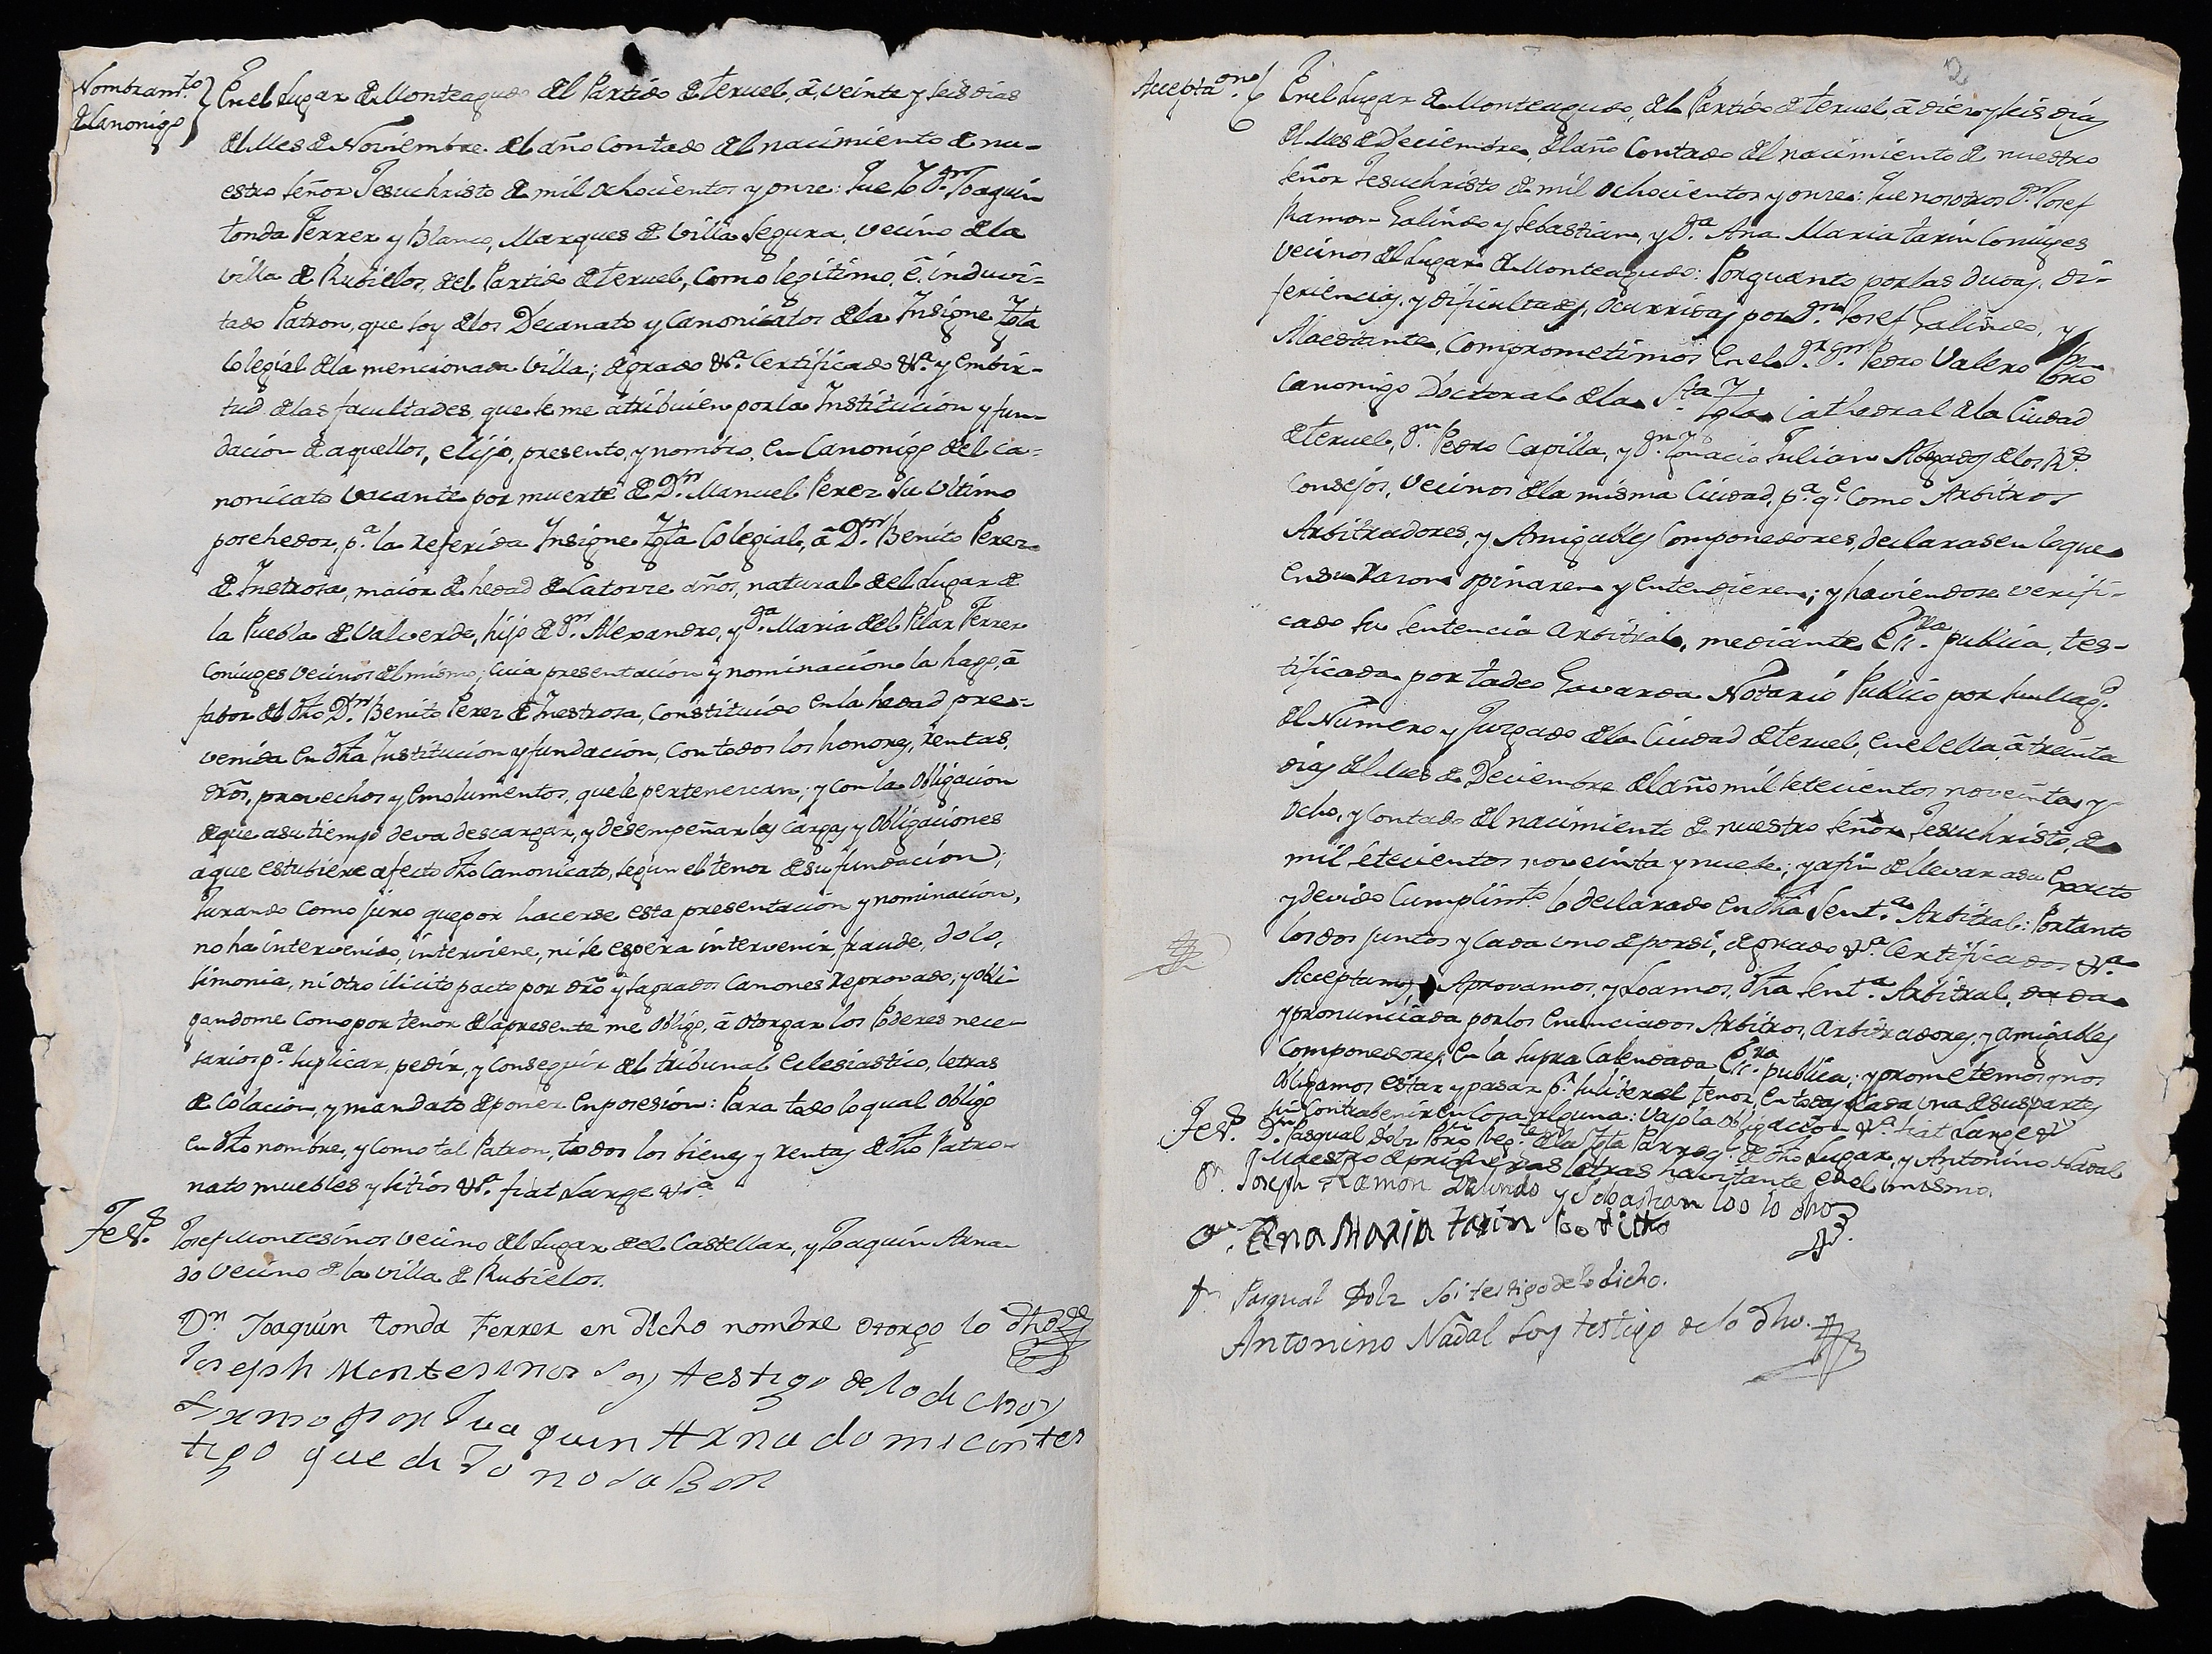 Nombram.to
de Canonigo
En el Lugar de Monteagudo del Partido de Teruel, â, veinte y seis dias
del Mes de Noviembre del año contado del nacimiento de nu-
estro Señor Jesuchristo de mil ochocientos y onze: Que Yo D.n Joaquin
tonda Ferrer y Blanco, Marques de Villa Segura, vecino de la
villa de Rubielos, del Partido de Teruel, como legitimo, ê, induvi-
tado Patron, que soy de los Decanato y Canonicatos de la Insigne Igla
Colegial de la mencionada villa; de grado &.a Certificado &.a y en vir-
tud de las facultades, que se me atribuien por la Institucion y fun-
dacion de aquellos, elijo, presento, y nombro, en Canonigo del ca-
nonicato vacante por muerte de D.n Manuel Perez su ultimo
poshehedor, p.a la referida Insigne Igla Colegial, â D.n Benito Perez
de Inestrosa, maior de hedad de Catorze años, natural del Lugar de
la Puebla de Valverde, hijo de D.n Alexandro, y D.a Maria del Pilar Ferrer
Coniuges vecinos del mismo; cuia presentacion y nominacion la hago, â
fabor del dho D.n Benito Perez de Inestrosa, constituido en la hedad pre-
venida en dha Institucion y fundacion, con todos los honores, rentas,
dros, provechos y emolumentos, que le pertenezcan; y con la obligacion
de que a su tiempo deva descargar, y desempeñar las cargas y obligaciones
a que estubiere afecto dho Canonicato, segun el tenor de su fundacion;
Jurando como juro que por hacerse esta presentacion y nominacion,
no ha intervenido, interviene, ni se espera intervenir, fraude, dolo,
simonia, ni otro ilicito pacto por dro y sagrados Canones reprovado; y obli-
gandome como por tenor de la presente me obligo, â otorgar los Poderes nece-
sarios p.a suplicar, pedir, y conseguir del tribunal eclesiastico, letras
de Colacion, y mandato de poner en posesion: Para todo lo qual obligo
en dho nombre, y como tal Patron, todos los bienes y rentas de dho Patro-
nato muebles y sitios &.a fiat Large &.a
Tes.s
Josef Montesinos vecino del Lugar del Castellar, y Joaquin Arna-
do vecino de la villa de Rubielos.
D.n Joaquin tonda Ferrer en dicho nombre otorgo lo dho
Joseph Montesinos Soy testigo de lo dicho y
firmo por Juaquin Arnado mi contes
tigo que dijo no saber
2
Accepta.on
En el Lugar de Monteagudo, del Partido de Teruel, â diez y seis dias
del Mes de Deciembre, del año Contado del nacimiento de nuestro
Señor Jesuchristo de mil ochocientos y onze: Que nosotros D.n Josef
Ramon Galindo y Sebastian, y D.a Ana Maria tarin Coniuges
vecinos del Lugar de Monteagudo: Por quanto por las dudas, di-
ferencias, y dificultades, ocurridas por D.n Josef Galindo, y
Maestante, Comprometimos en el D.r D.n Pedro Valero Pbro
Canonigo Doctoral de la S.ta Igla Cathedral de la Ciudad
de Teruel, D.n Pedro Capilla, y D.n Ignacio Julian Abogados de los R.s
Consejos, vecinos de la misma Ciudad, p.a q.e como Arbitros
Arbitradores, y Amigables Componedores, declarasen lo que
en su razon opinaren y entendieren; y haviendose verifi-
cado su Sentencia Arbitral, mediante Es.ra publica, tes-
tificada por tadeo Gavarda Notario Publico por su Mag.d
del Número y Juzgado de la Ciudad de Teruel, en el ella, â treinta
dias del Mes de Deciembre del año mil setecientos noventa y
ocho, y contado del nacimiento de nuestro Señor Jesuchristo, de
mil setecientos noveinta y nuebe; y a fin de llevar a su exacto
y devido Cumplim.to lo declarado en dha Sent.a Arbitral: Portanto
los dos juntos y cada uno de por si, de grado &.a Certificados &.a
Acceptamos, Aprovamos, y Loamos, dha Sent.a Arbitral, dada
y pronunciada por los enunciados Arbitros, arbitradores, y amigables
Componedores, en la supra Calendada Es.ra publica; y prometemos y nos
obligamos estar y pasar p.r su literal tenor, en todas y cada una de sus partes
sin contrabenir en cosa alguna: vajo la obligacion &.a fiat Large &.a
Tes.s
D.n Pasqual Dolz Pbro Reg.te de la Igla Parroq.l de dho Lugar, y Antonino Nadal
Maestro de primeras letras havitante en el mismo.
D.n Joseph Ramon Galindo y Sebastian loo lo dho
D.a Ana Maria Tarin loo dicho
D.n Pasqual Dolz Soi testigo de lo dicho.
Antonino Nadal Soy testigo de lo dho.